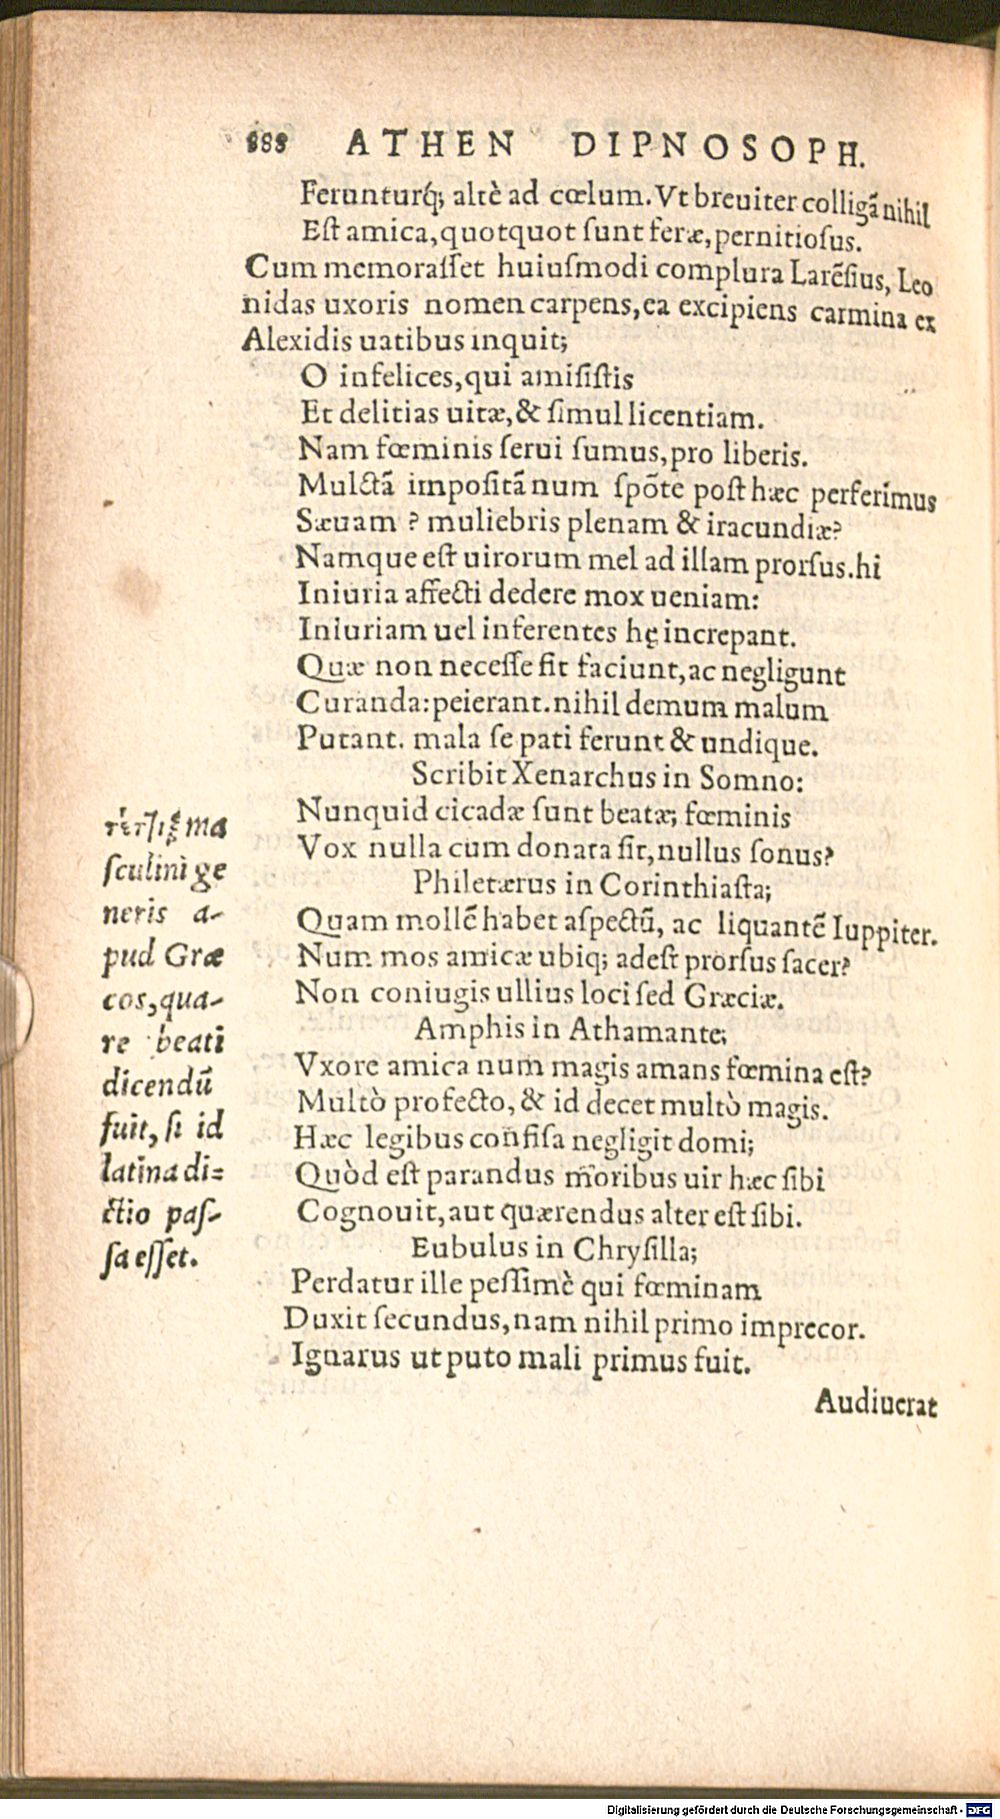 888 ATHEN DIPNOSOPH.
Ferunturq́; altè ad cœlum. Vt breuiter colligā nihil
Est amica, quotquot sunt feræ, pernitiosus.
Cum memorasset huiusmodi complura Larēsius, Leo
nidas uxoris nomen carpens, ea excipiens carmina ex
Alexidis uatibus inquit;
O infelices, qui amisistis
Et delitias uitæ, & simul licentiam.
Nam fœminis serui sumus, pro liberis.
Mulctā impositā num spōte post hæc perferimus
Sæuam ? muliebris plenam & iracundiæ?
Namque est uirorum mel ad illam prorsus. hi
Iniuria affecti dedere mox ueniam:
Iniuriam uel inferentes hę increpant.
Quæ non necesse sit faciunt, ac negligunt
Curanda: peierant. nihil demum malum
Putant. mala se pati ferunt & undique.
Scribit Xenarchus in Somno:
Nunquid cicadæ sunt beatæ; fœminis
Vox nulla cum donata sit, nullus sonus?
Philetærus in Corinthiasta;
Quam mollē habet aspectū, ac liquantē Iuppiter.
Num mos amicæ ubiq; adest prorsus sacer?
Non coniugis ullius loci sed Græciæ.
Amphis in Athamante;
Vxore amica num magis amans fœmina est?
Multò profecto, & id decet multò magis.
Hæc legibus confisa negligit domi;
Quòd est parandus moribus uir hæc sibi
Cognouit, aut quærendus alter est sibi.
Eubulus in Chrysilla;
Perdatur ille pessimè qui fœminam
Duxit secundus, nam nihil primo imprecor.
Ignarus ut puto mali primus fuit.
Audiuerat
τέτλιξ ma
sculini ge
neris a-
pud Græ
cos, qua-
re beati
dicendū
fuit, si id
latina di=
ctio pas-
sa esset.
Digitalisierung gefördert durch die Deutsche Forschungsgemeinschaft - DFG